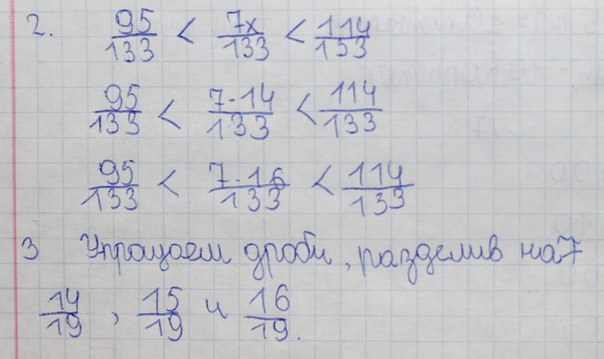 2. 95/133 < 7x/133 < 114/133
95/133 < 7·14/133 < 114/133
95/133 < 7·16/133 < 114/133
3 Упрощаем дроби, разделив на 7
14/19, 15/19 и 16/19.